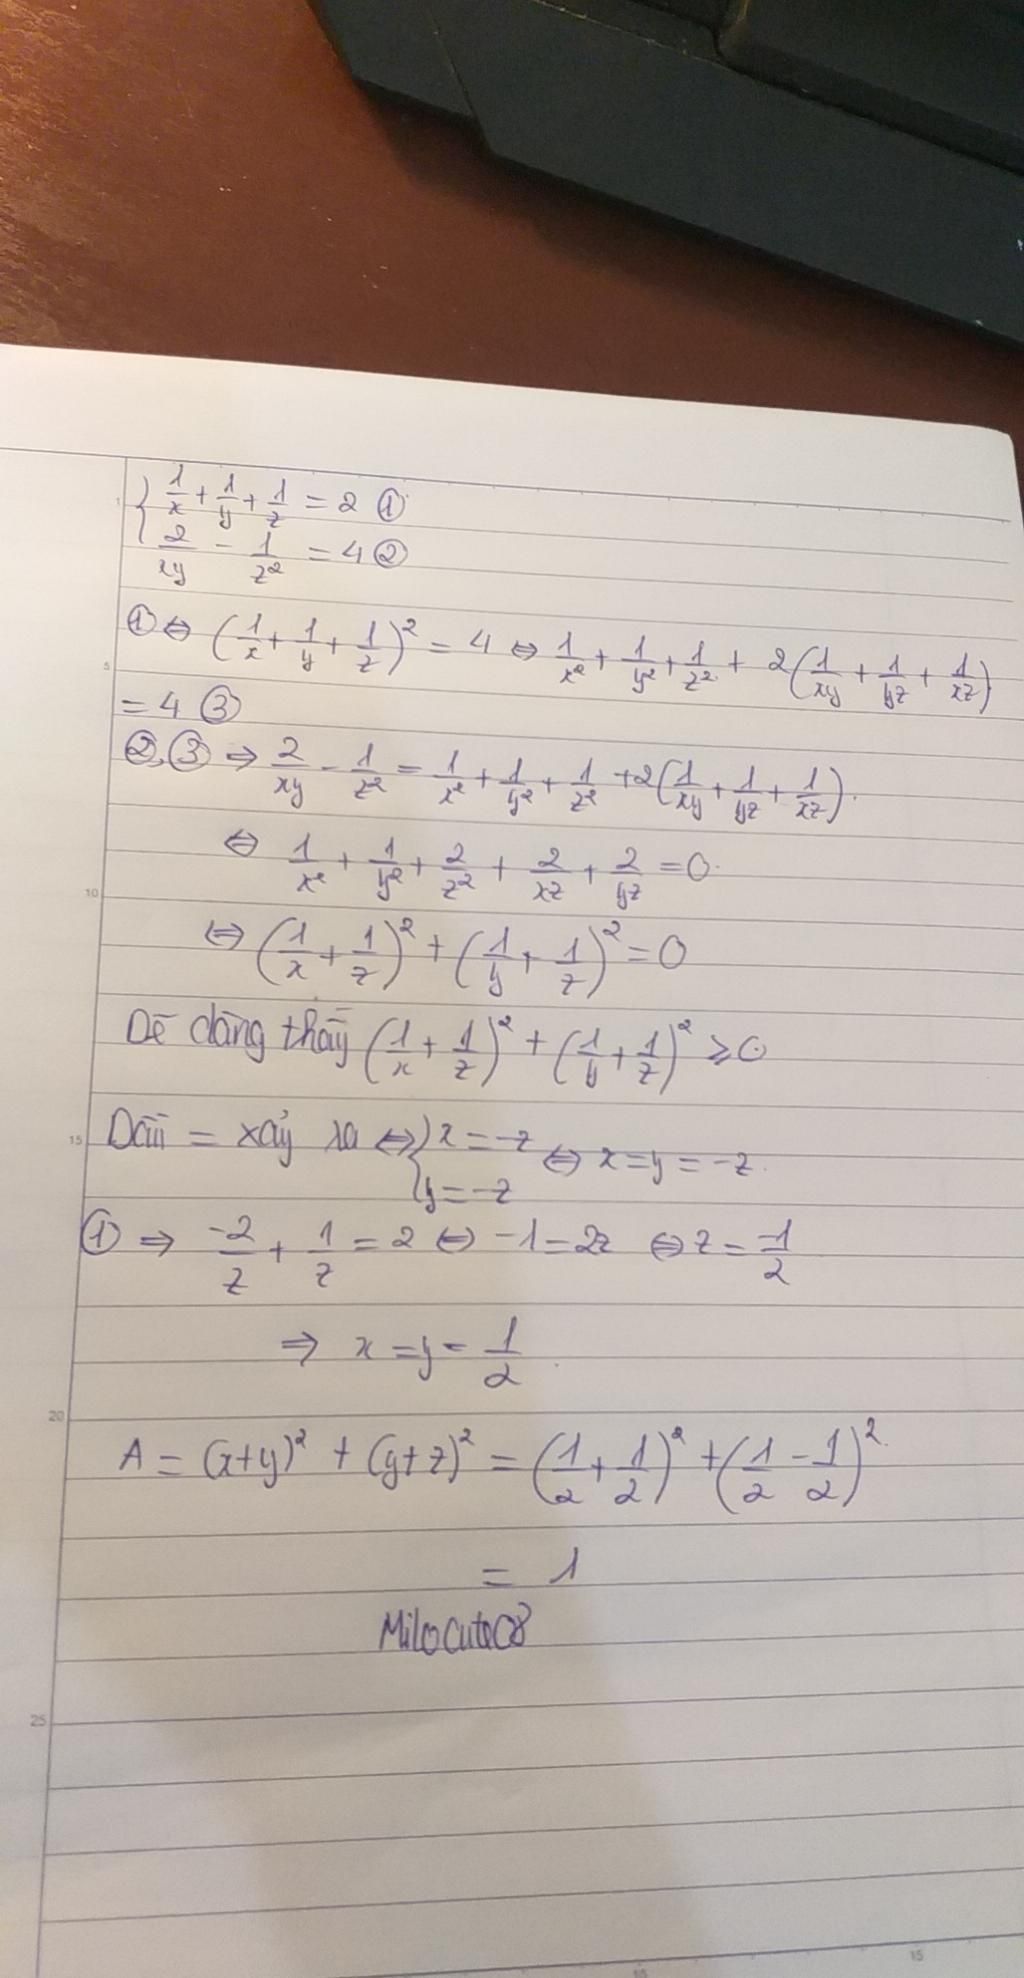 { 1/x + 1/y + 1/z = 2 ①
2/xy - 1/z² = 4 ②
① ⇔ (1/x + 1/y + 1/z)² = 4 ⇔ 1/x² + 1/y² + 1/z² + 2(1/xy + 1/yz + 1/xz)
= 4 ③
②, ③ ⇒ 2/xy - 1/z² = 1/x² + 1/y² + 1/z² + 2(1/xy + 1/yz + 1/xz).
⇔ 1/x² + 1/y² + 2/z² + 2/xz + 2/yz = 0.
⇔ (1/x + 1/z)² + (1/y + 1/z)² = 0
Dễ dàng thấy (1/x + 1/z)² + (1/y + 1/z)² ≥ 0
Dấu = xảy ra ⇔ { x = -z
y = -z ⇔ x = y = -z.
① ⇒ -2/z + 1/z = 2 ⇔ -1 = 2z ⇔ z = -1/2
⇒ x = y = 1/2.
A = (x+y)² + (y+z)² = (1/2 + 1/2)² + (1/2 - 1/2)².
= 1
Milocute08
1
5
10
15
20
25
10
15